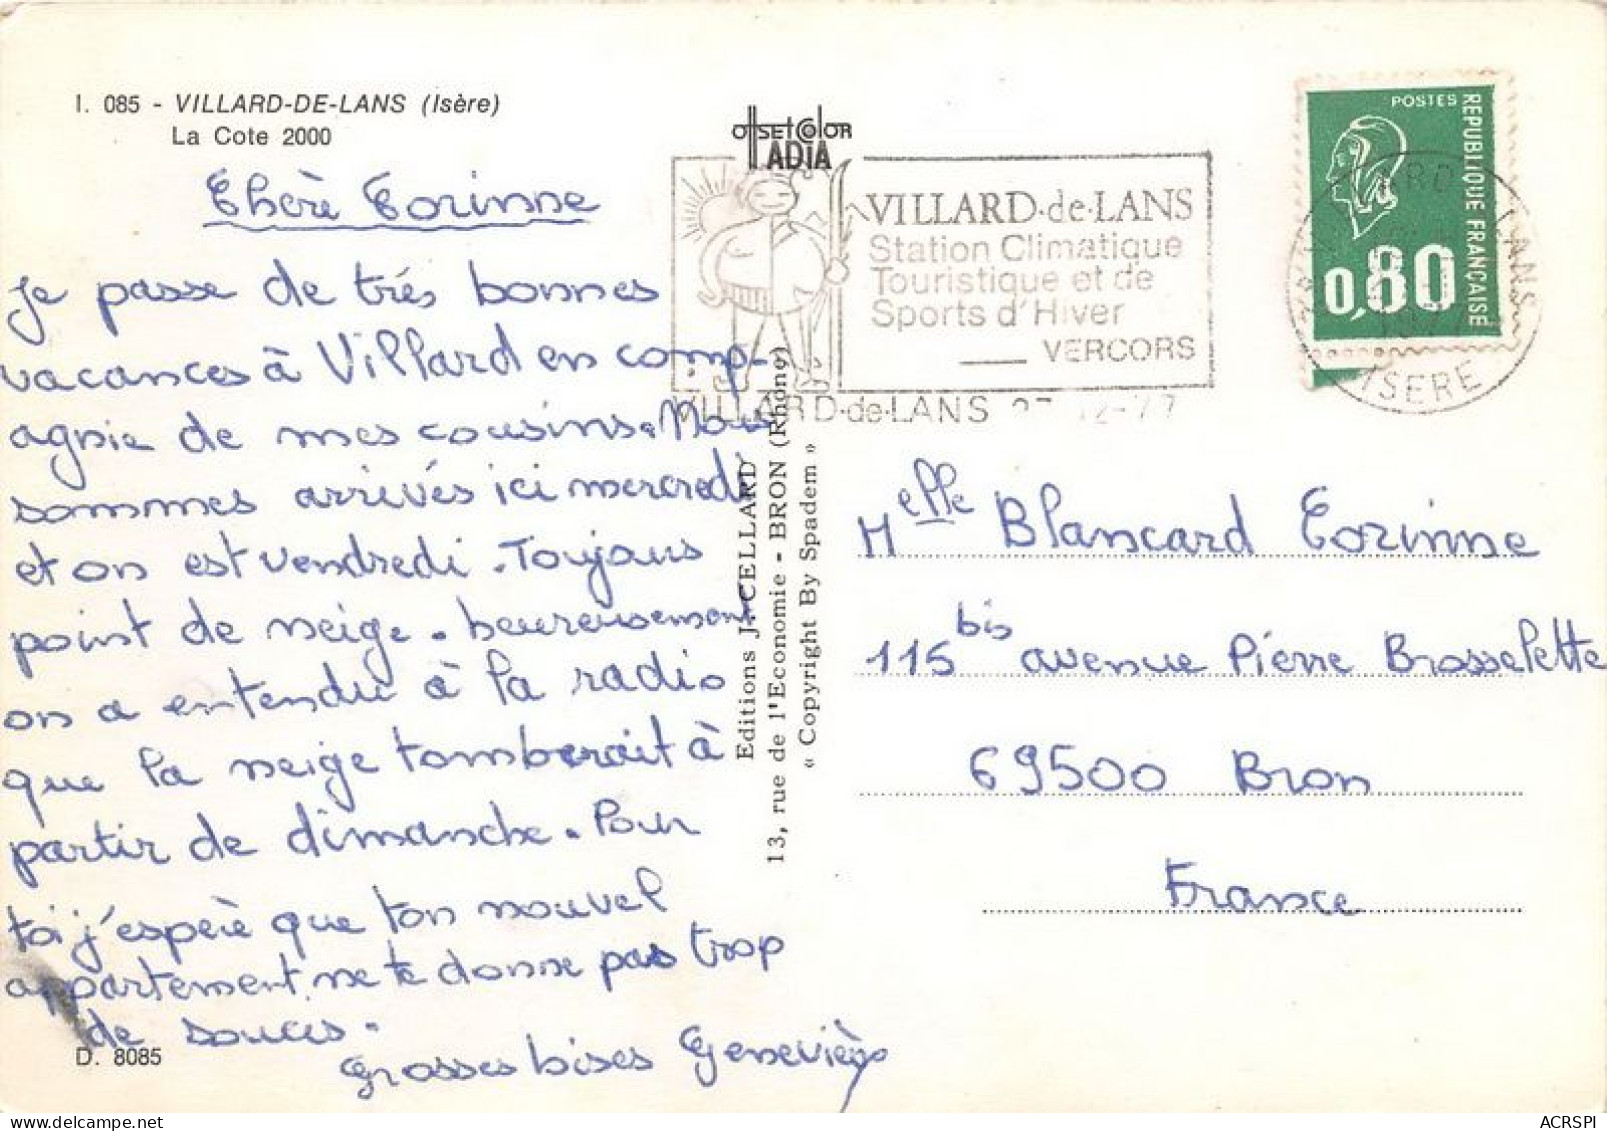 I. 085 - VILLARD-DE-LANS (Isère)
La Cote 2000
Chère Corinne
Je passe de très bonnes
vacances à Villard en comp-
agnie de mes cousins. Nous
sommes arrivés ici mercredi
et on est vendredi. Toujours
point de neige. heureusement
on a entendu à la radio
que la neige tomberait à
partir de dimanche. Pour
toi j'espère que ton nouvel
appartement ne te donne pas trop
de soucis.
Grosses bises Geneviève
D. 8085
offset color
ADIA
VILLARD-de-LANS
Station Climatique
Touristique et de
Sports d'Hiver
VERCORS
VILLARD-de-LANS 12-77
Editions J. CELLARD
13, rue de l'Economie - BRON (Rhône)
« Copyright By Spadem »
POSTES
REPUBLIQUE FRANÇAISE
0,80
ISERE
Melle Blancard Corinne
115 bis avenue Pierre Brosselette
69500 Bron
France
ACRSPI